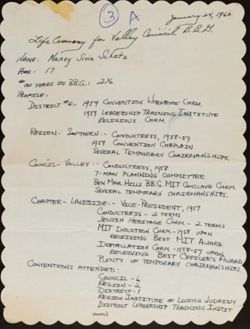 3 A
January 24, 1960
Life Ceremony for Valley Council B.B.G.
Name: Nancy Sivia Schatz
Age: 17
# of years in B.B.G. 2½
Profile:
District #4- 1959 Convention Welcome Chrm.
1959 Leadership Training Institute
Religious Chrm.
Region- Southern- Conductress, 1958-59
1959 Convention Chaplain
Several Temporary Chairmanships.
Council- Valley - Conductress, 1958
7-man Planning Committee
Ben Mar Hills B.B.G. MIT Conclave Chrm.
Several Temporary Chairmanships.
Chapter- Lakeside- Vice-President, 1959
Conductress - 2 terms
Jewish Heritage Chrm. - 2 terms
MIT Induction Chrm-1958 upon
receiving Best MIT Award
Installation Chrm.-1958-59 upon
receiving Best Officer's Award
Plenty of temporary chairmanships
Conventions attended:
Council-6
Region-2
District-1
Region Institute of Living Judaism
District Leadership Training Instit
(over)